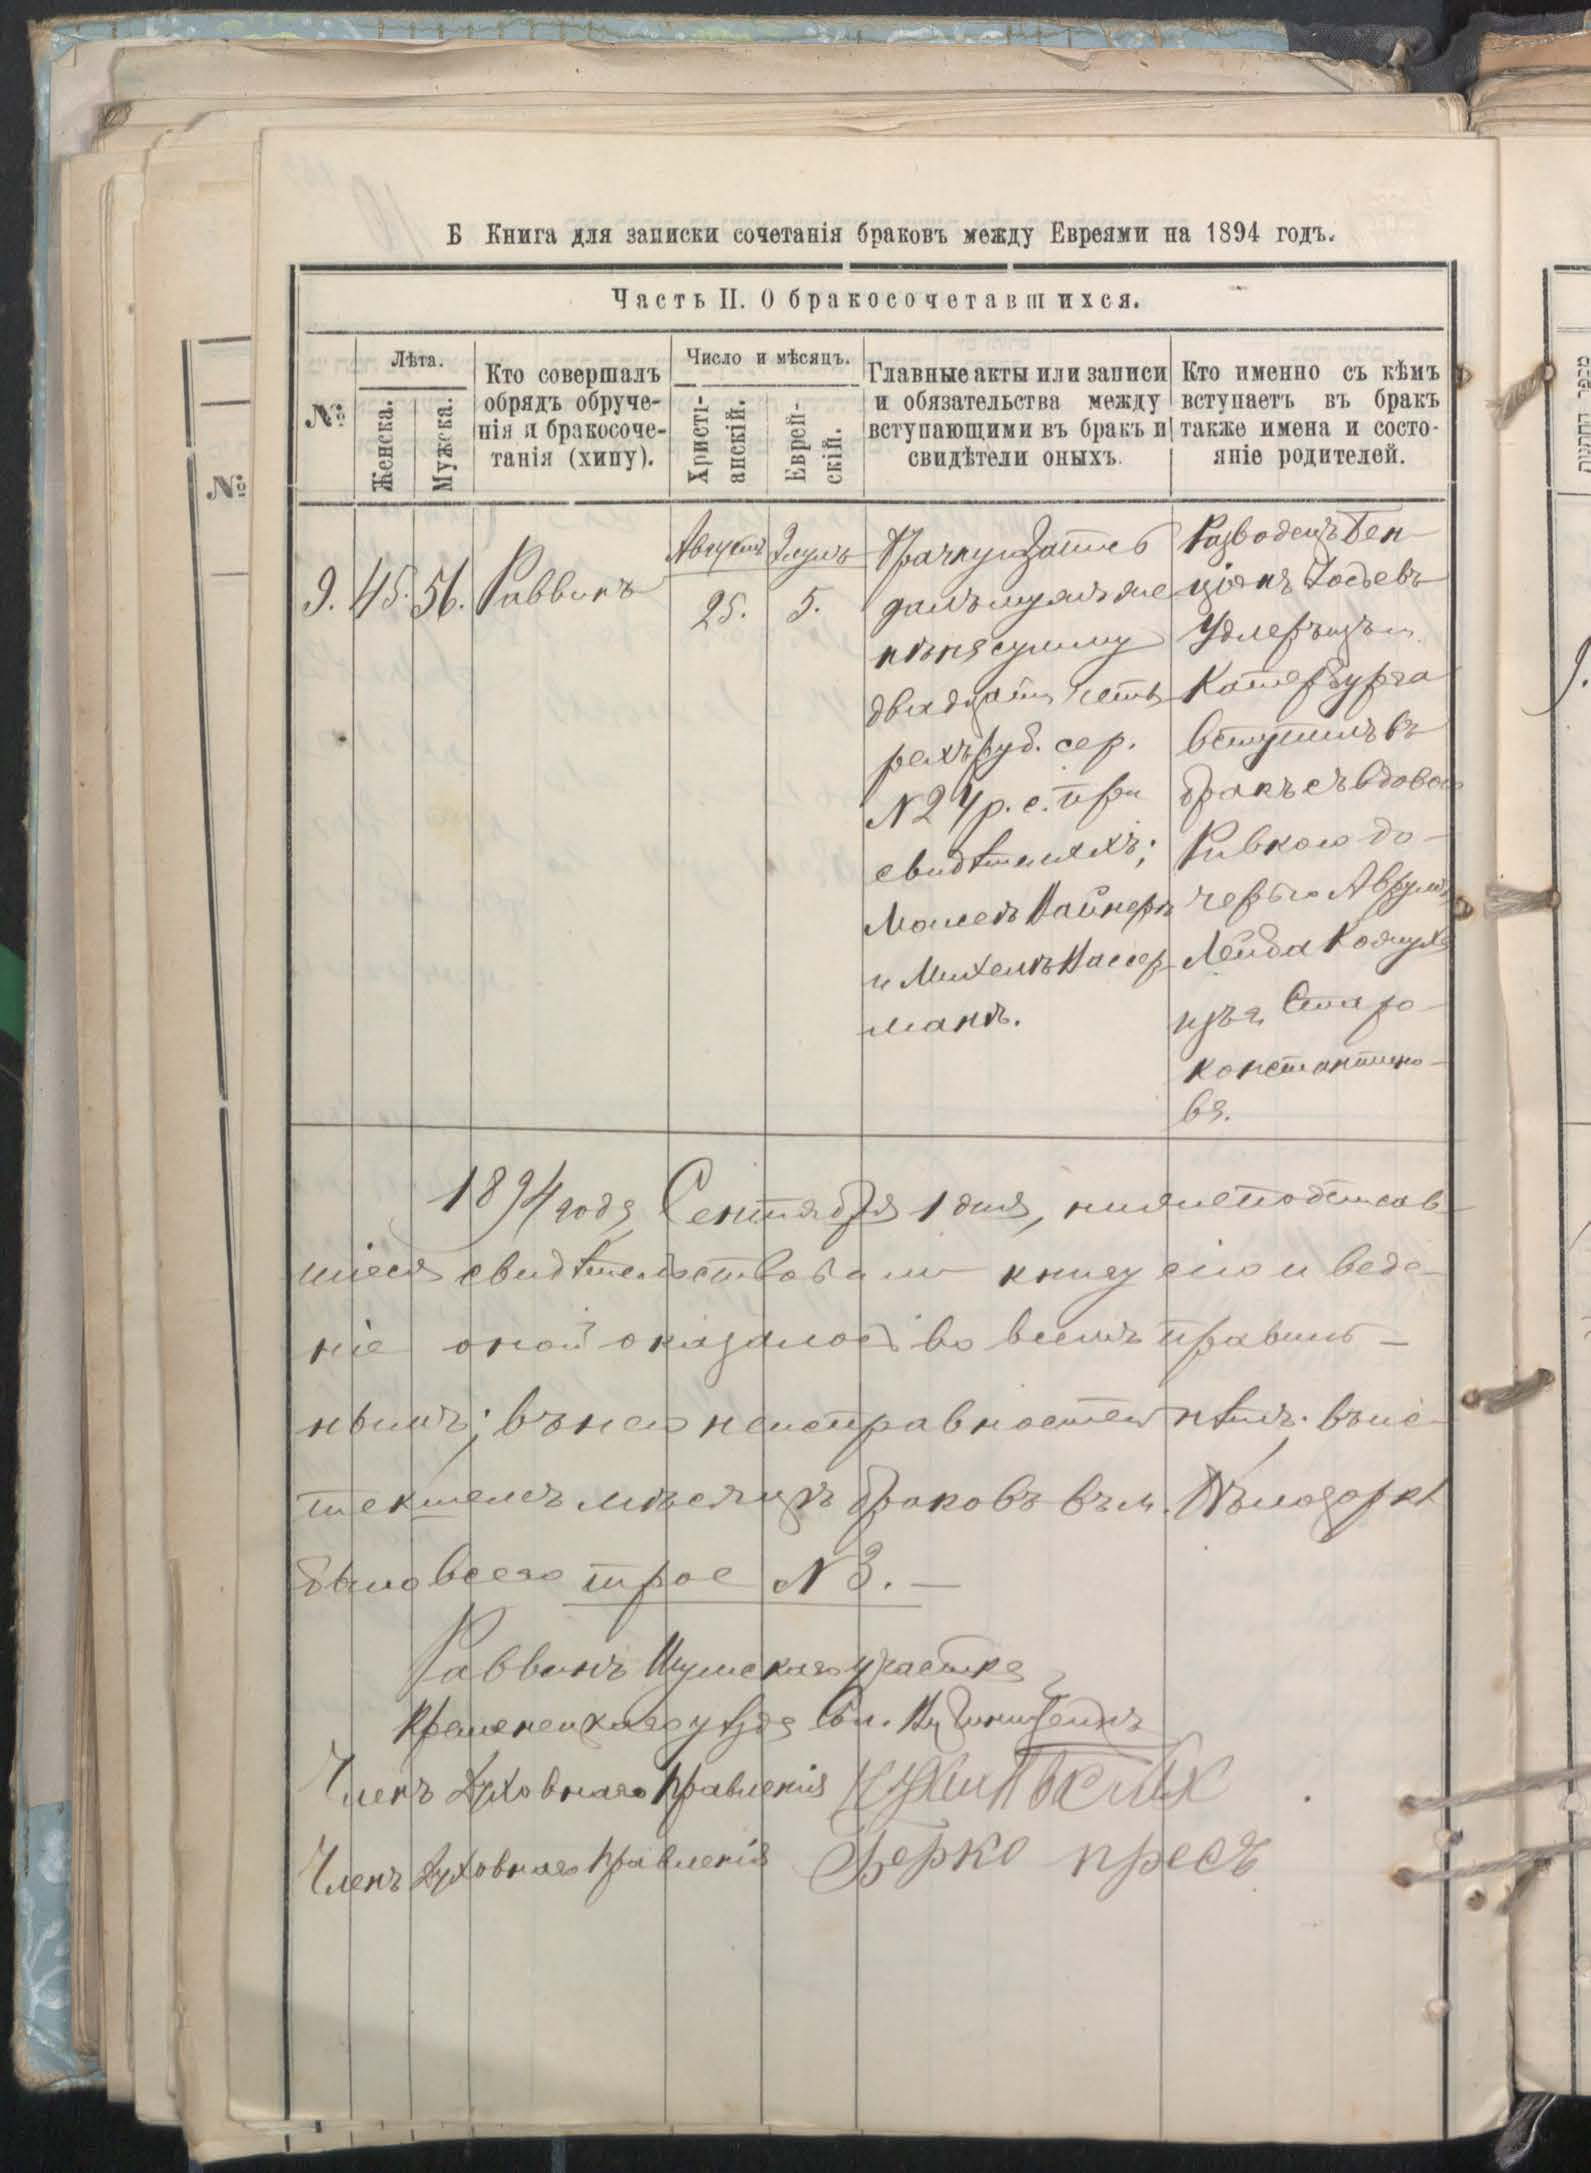 Б Книга для записки сочетанія браковъ между Евреями на 1894 годъ.
Часть II. О бракосочетавшихся.
№
Лѣта.
Женска.
Мужска.
Кто совершалъ
обрядъ обруче-
нія и бракосоче-
танія (хипу).
Число и мѣсяцъ.
Христі-
анскій.
Еврей-
скій.
Главные акты или записи
и обязательства между
вступающими въ бракъ и
свидѣтели оныхъ.
Кто именно съ кѣмъ
вступаетъ въ бракъ
также имена и состо-
яніе родителей.
9. 45. 56. Раввинъ
Августъ 25.
Элулъ 5.
Брачную запись
далъ мужъ же
нѣ на сумму
двадцать четы
рехъ руб. сер.
№ 24 р. с. при
свидѣтеляхъ;
Мошко Вайнеръ
и Михель Вассер
манъ.
Разводецъ Бен-
ціонъ Іосьевъ
изъ
Катербурга
вступилъ въ
бракъ съ вдовою
Ривкою до-
черью Аврумъ
Лейба
изъ Старо-
константино-
ва.
1894 года Сентября 1 дня, нижеподписав-
шіеся свидѣтельствовали книгу сію и веде-
ніе оной оказалось во всемъ правиль-
нымъ; въ ней неисправностей нѣтъ. въ ис-
текшемъ мѣсяцѣ браковъ въ м. Бѣлозоркѣ
было всего трое № 3. —
Раввинъ Шумскаго участка
Кременецкаго уѣзда
Членъ Духовнаго Правленія
Членъ Духовнаго Правленія Берко Пресъ
№
9.